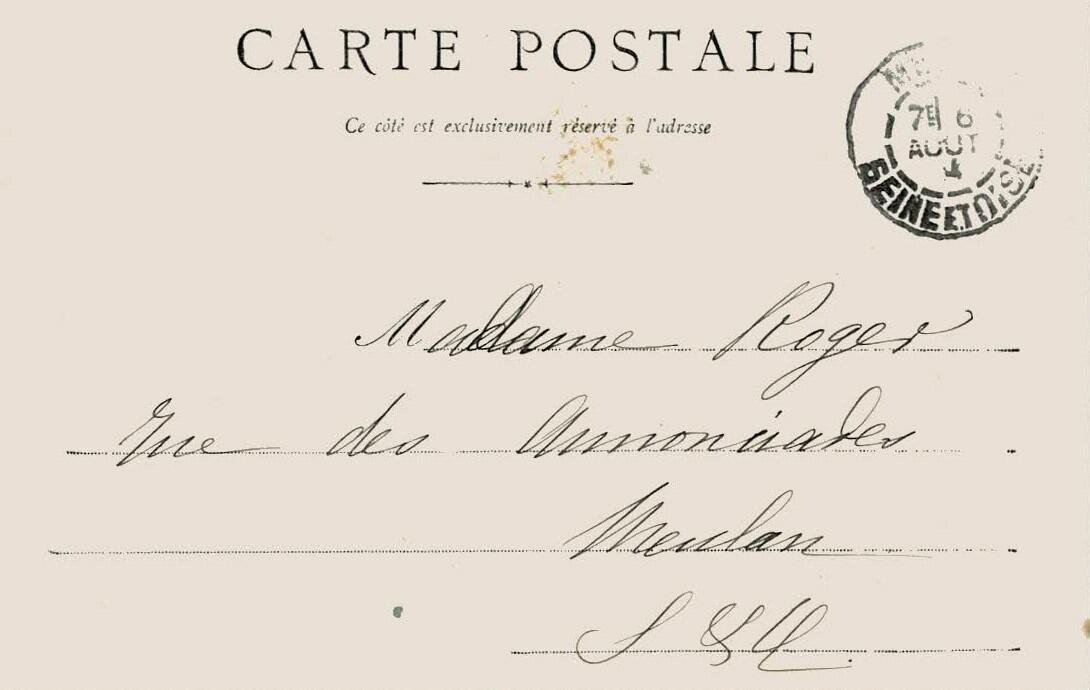 CARTE POSTALE
Ce côté est exclusivement réservé à l'adresse
7E 6
AOUT
SEINE ET OISE
Madame Roger
Rue des Annonciades
Meulan
S & O.